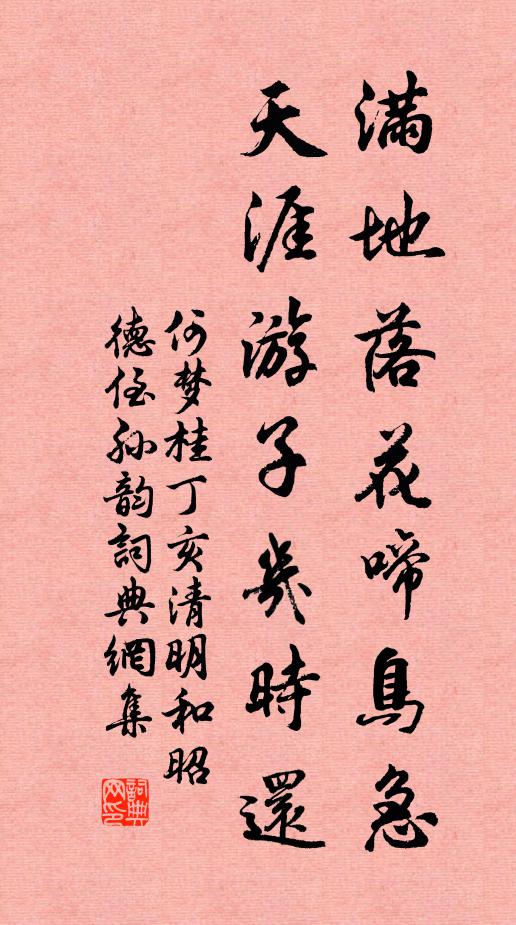 滿地落花啼鳥急
天涯游子幾時還
何梦桂丁亥清明和昭
德侄孙韵詞典網集
詞典网印